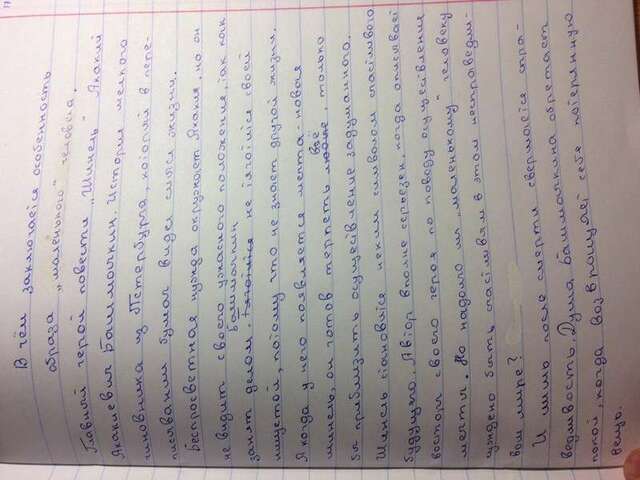 В чём заключается особенность
образа „маленького" человека.
Главный герой повести „Шинель" Акакий
Акакиевич Башмачкин. История мелкого
чиновника из Петербурга, который в пере-
писывании бумаг видел смысл жизни.
Беспросветная нужда окружает Акакия, но он
не видит своего ужасного положения, так как
занят делом. Башмачкин не тяготится своей
нищетой, потому что не знает другой жизни.
А когда у него появляется мечта - новая
шинель, он готов терпеть всё, только
бы приблизить осуществление задуманного.
Шинель становится неким символом счастливого
будущего. Автор вполне серьезен, когда описывает
восторг своего героя по поводу осуществления
мечты. Но надолго ли „маленькому" человеку
суждено быть счастливым в этом несправедли-
вом мире?
И лишь после смерти свершается спра-
ведливость. Душа Башмачкина обретает
покой, когда возвращает себе потерянную
вещь.